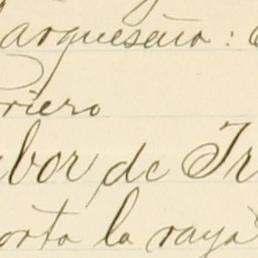 arqueseño:
riero
bor de Tr
orta la raya